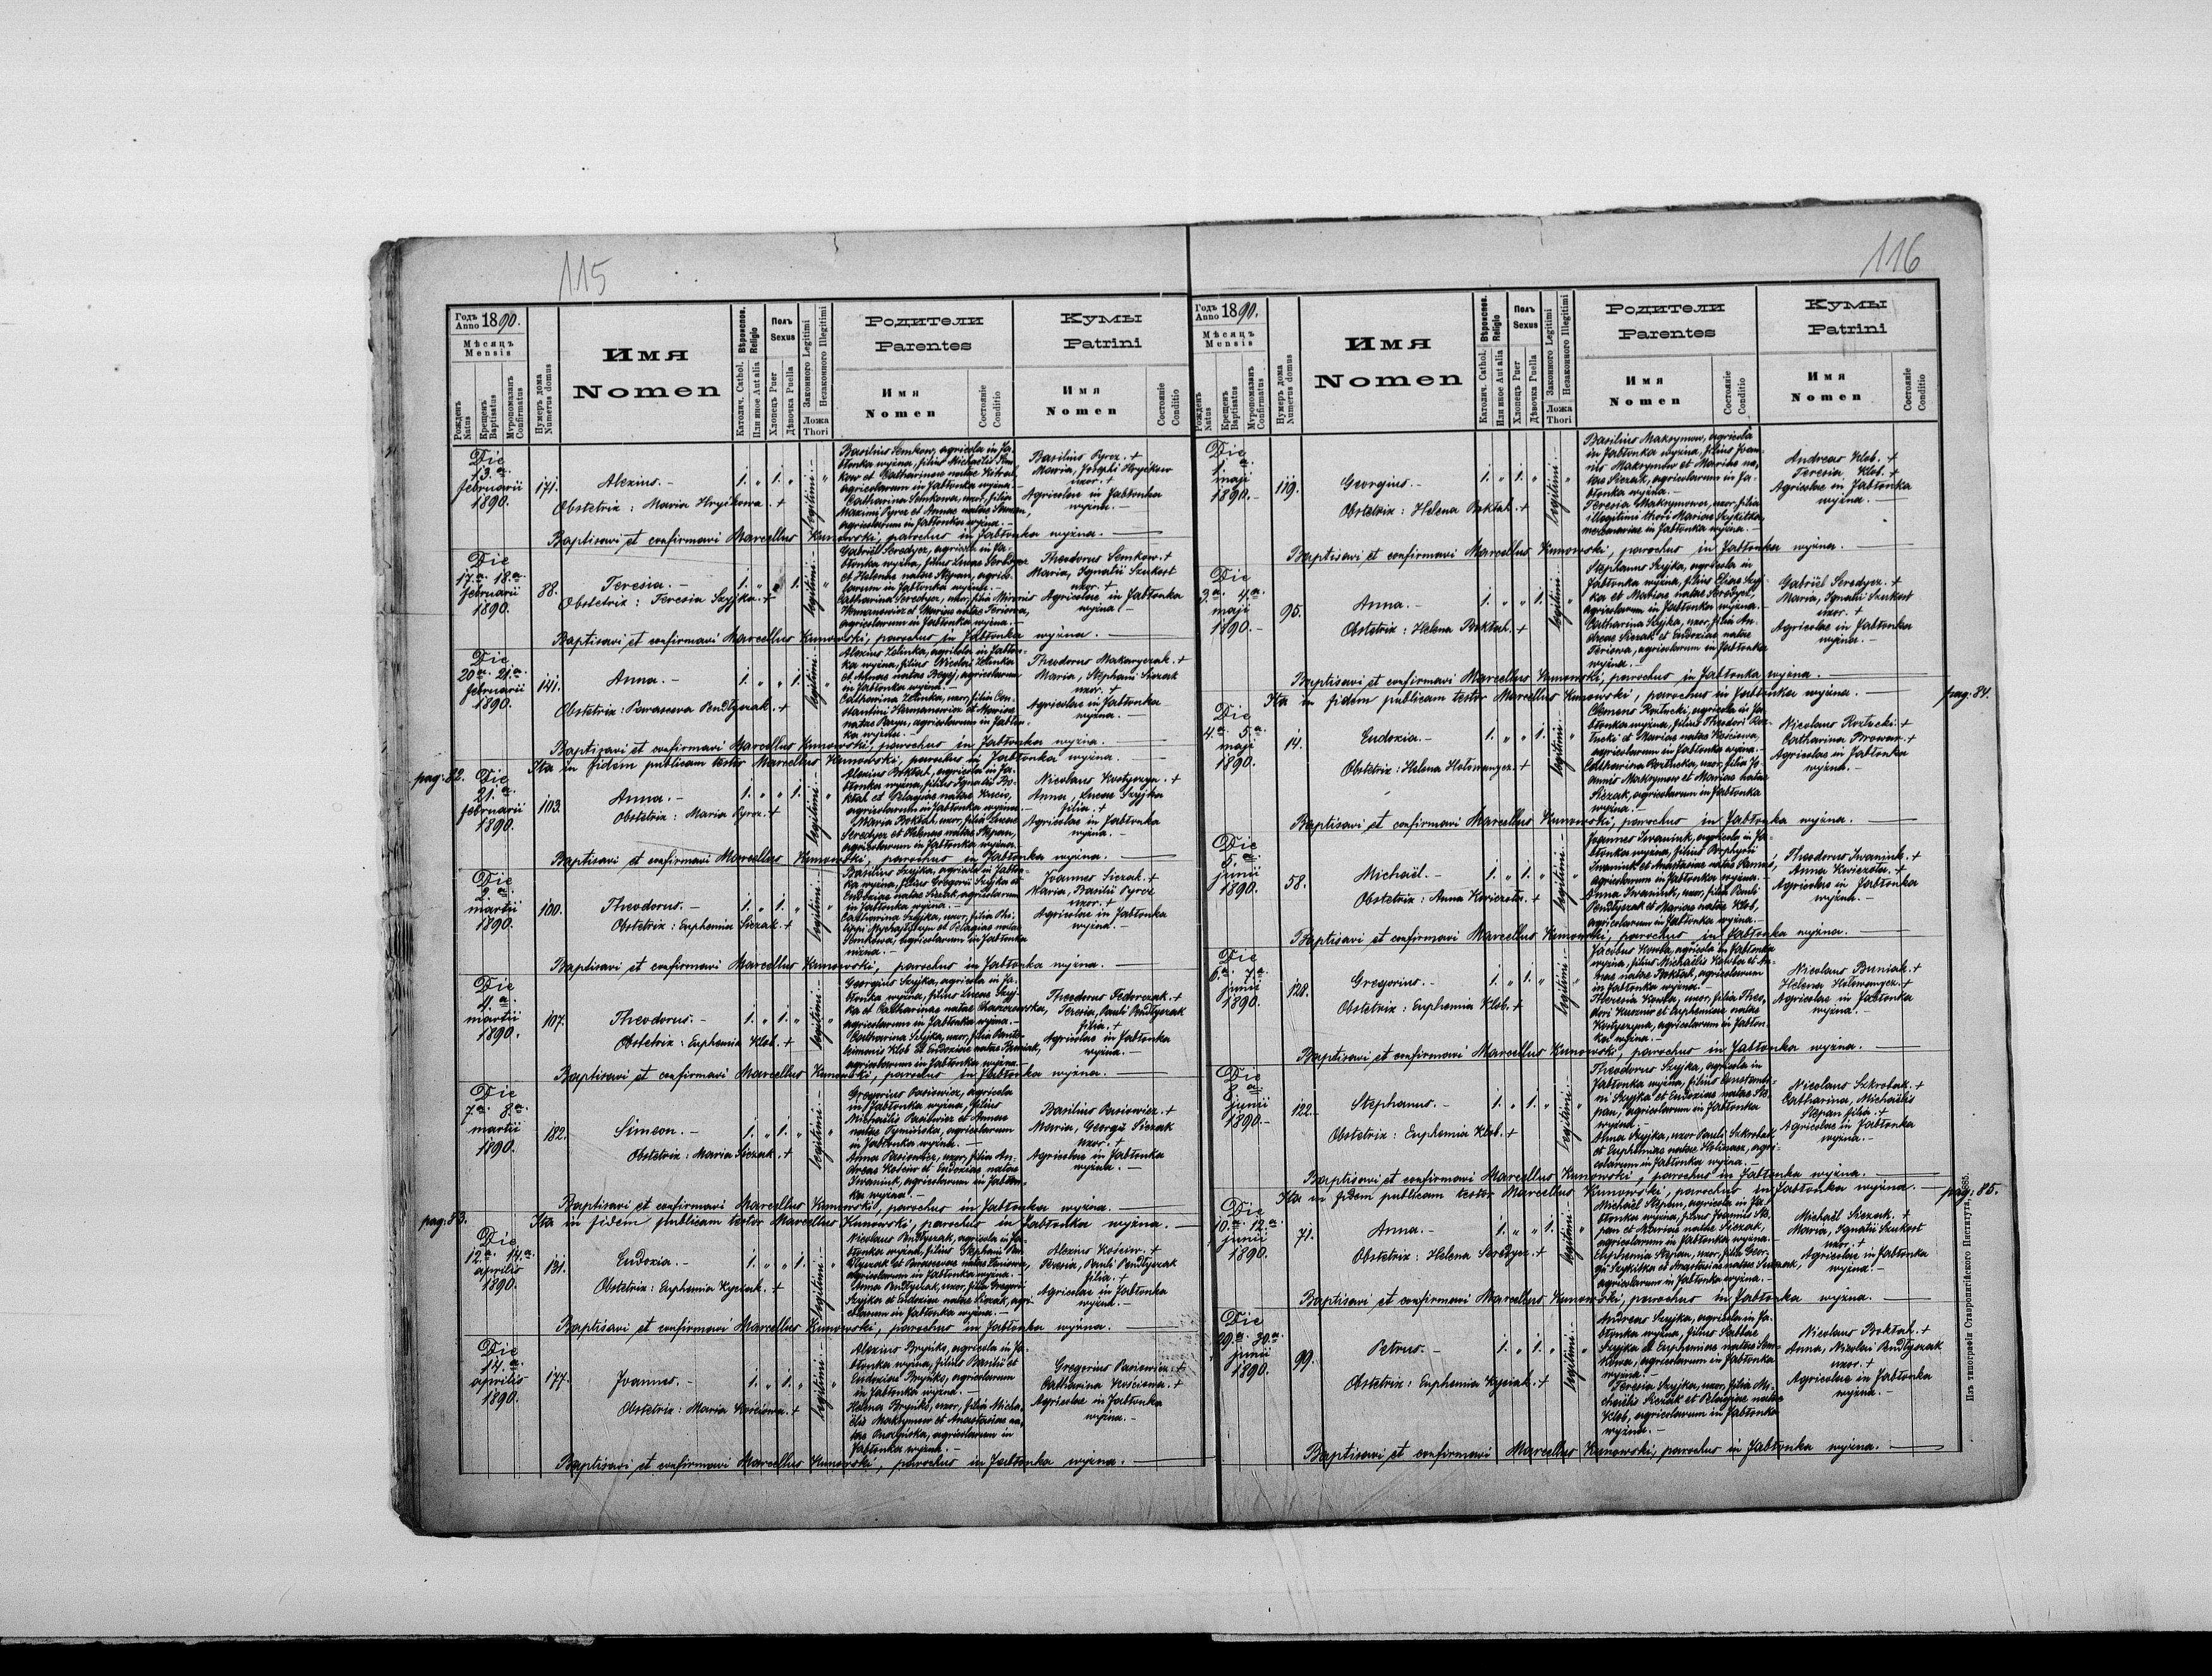 115
Годъ Anno 1890.
Мѣсяцъ
Mensis
Рожденъ Natus
Крещенъ Baptisatus
Мѵропомазанъ Confirmatus
Нумеръ дома Numerus domus
Имя
Nomen
Вѣроиспов. Religio
Католич. Cathol.
Или иное Aut alia
Полъ
Sexus
Хлопецъ Puer
Дѣвочка Puella
Законного Legitimi
Незаконного Illegitimi
Ложа
Thori
Родители
Parentes
Имя
Nomen
Состояніе
Conditio
Кумы
Patrini
Имя
Nomen
Состояніе
Conditio
Die
13.a
februarii
1890.
171.
Alexius. -
1. " 1. "
legitimi. -
Obstetrix: Maria Hryćkowa. +
Basilius Semkow, agricola in Ja-
błonka wyżna, filius Michaëlis Sem-
kow et Catharinae natae
agricolarum in Jabłonka wyżna. -
Catharina Semkowa, uxor, filia
Maximi Pyroz et Annae natae
agricolarum in Jabłonka wyżna. -
Basilius Pyroz. +
Maria, Josephi Hryćkow
uxor. +
Agricolae in Jabłonka
wyżna. -
Baptisavi et confirmavi Marcellus Kunowski, parochus in Jabłonka wyżna.
Die
17.a 18.a
februarii
1890.
88.
Teresia. -
1. " " 1.
legitimi. -
Obstetrix: Teresia Szyjka. +
Gabriël Seredycz, agricola in Ja-
błonka wyżna, filius Lucae Seredycz
et Helenae natae Stepan, agrico-
larum in Jabłonka wyżna. -
Catharina Seredycz, uxor, filia
Hermanowicz et Mariae natae Feriowa,
agricolarum in Jabłonka wyżna. -
Theodorus Semkow. +
Maria, Ignatii Szukost
uxor. +
Agricolae in Jabłonka
wyżna. -
Baptisavi et confirmavi Marcellus Kunowski, parochus in Jabłonka wyżna.
Die
20.a 21.a
februarii
1890.
141.
Anna. -
1. " " 1.
legitimi. -
Obstetrix: Parasceva Pendłyszak. +
Alexius Zelinka, agricola in Jabłon-
ka wyżna, filius Nicolai Zelinka
et Annae natae agricolarum
in Jabłonka wyżna. -
Catharina Zelinka, uxor, filia Con-
stantini Hermanowicz et Mariae
natae agricolarum in Jabłon-
ka wyżna. -
Theodorus Makaryczak. +
Maria, Stephani Siczak
uxor. +
Agricolae in Jabłonka
wyżna. -
Baptisavi et confirmavi Marcellus Kunowski, parochus in Jabłonka wyżna.
pag: 82.
Ita in fidem publicam testor Marcellus Kunowski, parochus in Jabłonka wyżna.
Die
21.a
februarii
1890.
103.
Anna. -
1. " " 1.
legitimi. -
Obstetrix: Maria Pyroz. +
Alexius Boktah, agricola in Ja-
błonka wyżna, filius Ignatii Bo-
ktah et Pelagiae natae
agricolarum in Jabłonka wyżna. -
Maria Boktah, uxor, filia Lucae
Seredycz et Helenae natae Stepan,
agricolarum in Jabłonka wyżna.
Nicolaus Kostyszyn. +
Anna, Lucae Szyjka
filia. +
Agricolae in Jabłonka
wyżna. -
Baptisavi et confirmavi Marcellus Kunowski, parochus in Jabłonka wyżna.
Die
2.a
martii
1890.
100.
Theodorus. -
1. " 1. "
legitimi. -
Obstetrix: Euphemia Siczak. +
Basilius Szyjka, agricola in Jabłon-
ka wyżna, filius Gregorii Szyjka et
Eudoxiae natae Siczak, agricolarum
in Jabłonka wyżna. -
Catharina Szyjka, uxor, filia Phi-
lippi et Pelagiae natae
Semkowa, agricolarum in Jabłonka
niżna. -
Joannes Siczak. +
Maria, Basilii Pyroz
uxor. +
Agricolae in Jabłonka
wyżna. -
Baptisavi et confirmavi Marcellus Kunowski, parochus in Jabłonka wyżna.
Die
4.a
martii
1890.
107.
Theodorus. -
1. " 1. "
legitimi. -
Obstetrix: Euphemia Klob. +
Georgius Szyjka, agricola in Ja-
błonka wyżna, filius Lucae Szyj-
ka et Catharinae natae
agricolarum in Jabłonka wyżna. -
Catharina Szyjka, uxor, filia Pante-
leimonis Klob et Eudoxiae natae Buniak,
agricolarum in Jabłonka wyżna. -
Theodorus Fedorczak. +
Teresia, Pauli Pendłyszak
filia. +
Agricolae in Jabłonka
wyżna. -
Baptisavi et confirmavi Marcellus Kunowski, parochus in Jabłonka wyżna.
Die
7.a 8.a
martii
1890.
182.
Simeon. -
1. " 1. "
legitimi. -
Obstetrix: Maria Siczak. +
Gregorius Pasiowicz, agricola
in Jabłonka wyżna, filius
Michaëlis Pasiowicz et Annae
natae Tyminska, agricolarum
in Jabłonka wyżna. -
Anna Pasiowicz, uxor, filia An-
dreae Kościow et Eudoxiae natae
Iwaniuk, agricolarum in Jabłon-
ka wyżna. -
Basilius Pasiowicz. +
Maria, Georgii Siczak
uxor. +
Agricolae in Jabłonka
wyżna. -
Baptisavi et confirmavi Marcellus Kunowski, parochus in Jabłonka wyżna.
pag: 83.
Ita in fidem publicam testor Marcellus Kunowski, parochus in Jabłonka wyżna.
Die
12.a 14.a
aprilis
1890.
131.
Eudoxia. -
1. " " 1.
legitimi. -
Obstetrix: Euphemia Kyciak. +
Nicolaus Pendłyszak, agricola in Ja-
błonka wyżna, filius Stephani Pen-
dłyszak et Parascevae natae
agricolarum in Jabłonka wyżna. -
Anna Pendłyszak, uxor, filia Gregorii
Szyjka et Eudoxiae natae Siczak, agri-
colarum in Jabłonka wyżna. -
Alexius Kościow. +
Pauli Pendłyszak
filia. +
Agricolae in Jabłonka
wyżna. -
Baptisavi et confirmavi Marcellus Kunowski, parochus in Jabłonka wyżna.
Die
14.a
aprilis
1890.
177.
Joannes. -
1. " 1. "
legitimi. -
Obstetrix: Maria Kościowa. +
Alexius Bryńko, agricola in Ja-
błonka wyżna, filius Basilii et
Eudoxiae Bryńko, agricolarum
in Jabłonka wyżna. -
Helena Bryńko, uxor, filia Micha-
ëlis Maksymow et Anastasiae na-
tae agricolarum in
Jabłonka wyżna. -
Gregorius Pasiowicz. +
Catharina Kościowa. +
Agricolae in Jabłonka
wyżna. -
Baptisavi et confirmavi Marcellus Kunowski, parochus in Jabłonka wyżna.
116
Годъ Anno 1890.
Мѣсяцъ
Mensis
Рожденъ Natus
Крещенъ Baptisatus
Мѵропомазанъ Confirmatus
Нумеръ дома Numerus domus
Имя
Nomen
Вѣроиспов. Religio
Католич. Cathol.
Или иное Aut alia
Полъ
Sexus
Хлопецъ Puer
Дѣвочка Puella
Законного Legitimi
Незаконного Illegitimi
Ложа
Thori
Родители
Parentes
Имя
Nomen
Состояніе
Conditio
Кумы
Patrini
Имя
Nomen
Состояніе
Conditio
Die
1.a
maji
1890. -
119.
Georgius. -
1. " 1. "
legitimi. -
Obstetrix: Helena Boktah. +
Basilius Maksymow, agricola
in Jabłonka wyżna, filius Joan-
nis Maksymow et Mariae na-
tae Siczak, agricolarum in Ja-
błonka wyżna. -
Teresia Maksymowa, uxor, filia
illegitimi thori Mariae Szykitka,
mercenariae in Jabłonka wyżna. -
Andreas Klob. +
Teresia Klob. +
Agricolae in Jabłonka
wyżna. -
Baptisavi et confirmavi Marcellus Kunowski, parochus in Jabłonka wyżna.
Die
3.a 4.a
maji
1890. -
95.
Anna. -
1. " " 1.
legitimi. -
Obstetrix: Helena Boktah. +
Stephanus Szyjka, agricola in
Jabłonka wyżna, filius Eliae Szyj-
ka et Mariae natae Seredycz,
agricolarum in Jabłonka wyżna. -
Catharina Szyjka, uxor, filia An-
dreae Siczak et Eudoxiae natae
Feriowa, agricolarum in Jabłonka
wyżna. -
Gabriël Seredycz. +
Maria, Ignatii Szukost
uxor. +
Agricolae in Jabłonka
wyżna. -
Baptisavi et confirmavi Marcellus Kunowski, parochus in Jabłonka wyżna.
Ita in fidem publicam testor Marcellus Kunowski, parochus in Jabłonka wyżna. -
pag: 84.
Die
4.a 5.a
maji
1890.
14.
Eudoxia. -
1. " " 1.
legitimi. -
Obstetrix: Helena Hołowangcz. +
Clemens Roztucki, agricola in Ja-
błonka wyżna, filius Theodori Roz-
tucki et Mariae natae Kościowa,
agricolarum in Jabłonka wyżna. -
Catharina Roztucka, uxor, filia Jo-
annis Maksymow et Mariae natae
Siczak, agricolarum in Jabłonka
wyżna. -
Nicolaus Roztucki. +
Catharina Browar. +
Agricolae in Jabłonka
wyżna. -
Baptisavi et confirmavi Marcellus Kunowski, parochus in Jabłonka wyżna.
Die
5.a
junii
1890.
58.
Michaël. -
1. " 1. "
legitimi. -
Obstetrix: Anna Kwiczota. +
Joannes Iwaniuk, agricola in Ja-
błonka wyżna, filius Porphyrii
Iwaniuk et Anastasiae natae
agricolarum in Jabłonka wyżna. -
Anna Iwaniuk, uxor, filia Pauli
Pendłyszak et Mariae natae Klob,
agricolarum in Jabłonka wyżna. -
Theodorus Iwaniuk. +
Anna Kwiczota. +
Agricolae in Jabłonka
wyżna. -
Baptisavi et confirmavi Marcellus Kunowski, parochus in Jabłonka wyżna.
Die
6.a 7.a
junii
1890.
128.
Gregorius. -
1. " 1. "
legitimi. -
Obstetrix: Euphemia Klob. +
Jacobus Kowba, agricola in Jabłonka
wyżna, filius Michaëlis Kowba et An-
nae natae Boktah, agricolarum
in Jabłonka wyżna. -
Theresia Kowba, uxor, filia Theo-
dori Kusznir et Euphemiae natae
Kostyszyn, agricolarum in Jabłon-
ka wyżna. -
Nicolaus Buniak. +
Helena Hołowangcz. +
Agricolae in Jabłonka
wyżna. -
Baptisavi et confirmavi Marcellus Kunowski, parochus in Jabłonka wyżna.
Die
8.a
junii
1890. -
122.
Stephanus. -
1. " 1. "
legitimi. -
Obstetrix: Euphemia Klob. +
Theodorus Szyjka, agricola in
Jabłonka wyżna, filius Constanti-
ni Szyjka et Eudoxiae natae Ste-
pan, agricolarum in Jabłonka
wyżna. -
Anna Szyjka, uxor Pauli Szkrobak
et Euphemiae natae agri-
colarum in Jabłonka wyżna. -
Nicolaus Szkrobak. +
Catharina, Michaëlis
Stepan filia. +
Agricolae in Jabłonka
wyżna. -
Baptisavi et confirmavi Marcellus Kunowski, parochus in Jabłonka wyżna.
Ita in fidem publicam testor Marcellus Kunowski, parochus in Jabłonka wyżna. -
pag: 85.
Die
10.a 12.a
junii
1890.
71.
Anna. -
1. " " 1.
legitimi. -
Obstetrix: Helena Seredycz. +
Michaël Stepan, agricola in Ja-
błonka wyżna, filius Joannis Ste-
pan et Mariae natae Siczak,
agricolarum in Jabłonka wyżna. -
Euphemia Stepan, uxor, filia Geor-
gii Szykitka et Anastasiae natae
agricolarum in Jabłonka wyżna. -
Michaël Siczak. +
Maria, Ignatii Szukost
uxor. +
Agricolae in Jabłonka
wyżna. -
Baptisavi et confirmavi Marcellus Kunowski, parochus in Jabłonka wyżna.
Die
29.a 30.a
junii
1890.
99.
Petrus. -
1. " 1. "
legitimi. -
Obstetrix: Euphemia Kyciak. +
Andreas Szyjka, agricola in Ja-
błonka wyżna, filius Sabbae
Szyjka et Euphemiae natae Sem-
kowa, agricolarum in Jabłonka
wyżna. -
Teresia Szyjka, uxor, filia Mi-
chaëlis Siczak et Pelagiae natae
Klob, agricolarum in Jabłonka
wyżna. -
Nicolaus Boktah. +
Anna, Nicolai Pendłyszak
uxor. +
Agricolae in Jabłonka
wyżna. -
Baptisavi et confirmavi Marcellus Kunowski, parochus in Jabłonka wyżna.
Изъ типографіи Ставропигійского Института, 1885.